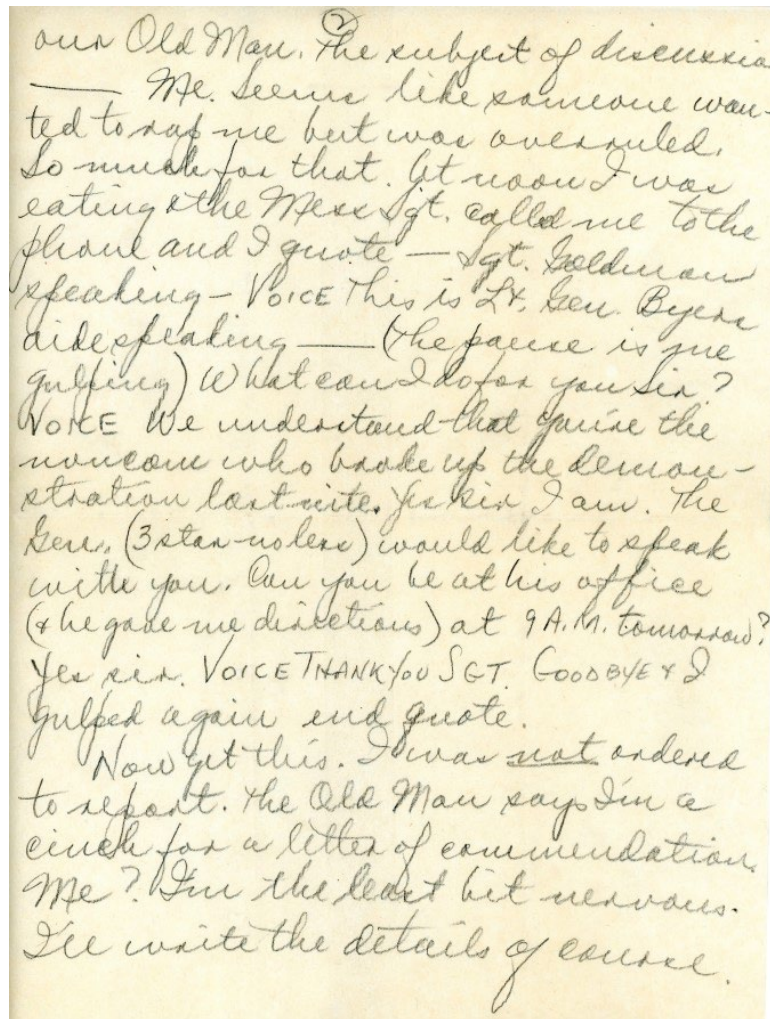 (2)
our Old Man. The subject of discussion
— Me. Seems like someone wan-
ted to rap me but was overruled.
So much for that. At noon I was
eating & the Mess Sgt. called me to the
phone and I quote — Sgt. Goldman
speaking — VOICE This is Lt. Gen. Byers
aide speaking — (the pause is me
gulping) What can I do for you Sir?
VOICE We understand that you're the
noncom who broke up the demon-
stration last nite. Yes sir I am. The
Gen. (3 star - no less) would like to speak
with you. Can you be at his office
(& he gave me directions) at 9 A.M. tomorrow?
Yes sir. VOICE THANK YOU SGT. GOODBYE & I
gulped again end quote.
Now get this. I was not ordered
to report. The Old Man says I'm a
cinch for a letter of commendation.
Me? I'm the least bit nervous.
I'll write the details of course.